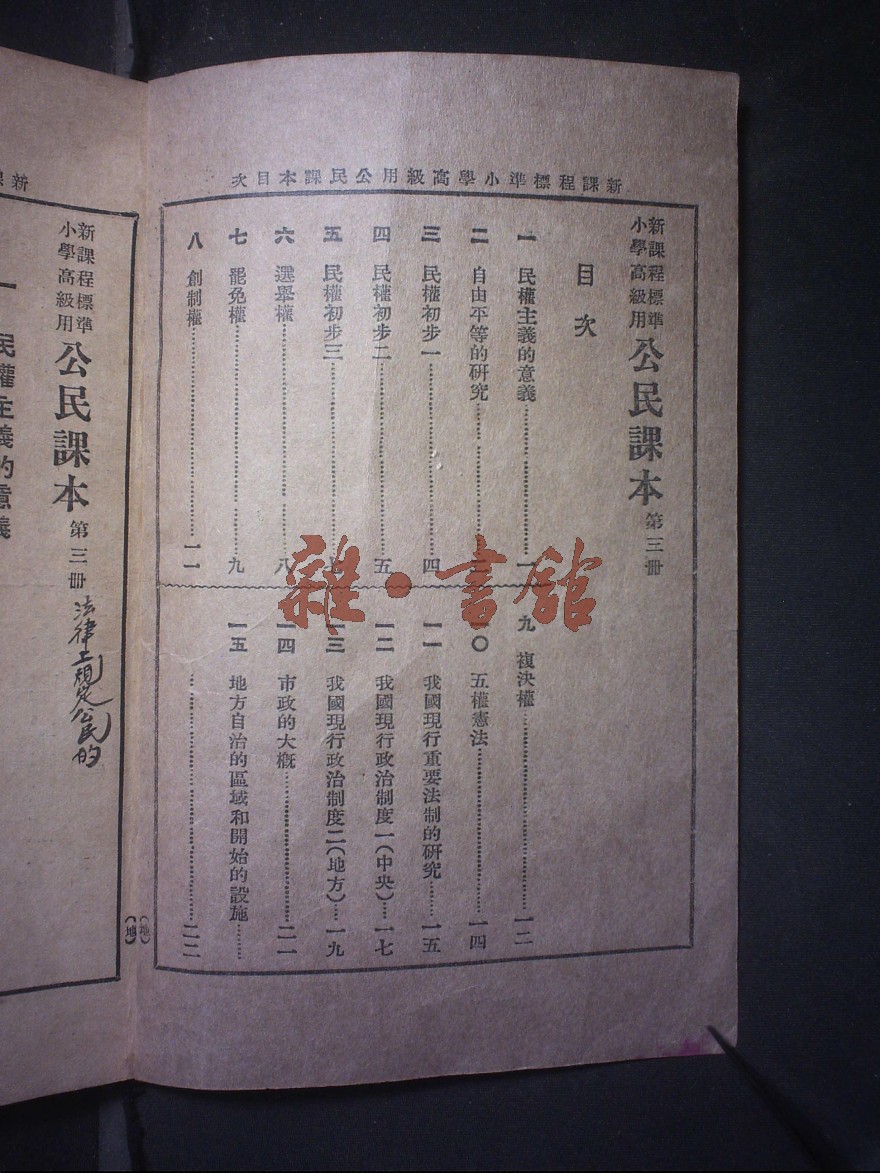 新課程標準小學高級用公民課本目次
新課程標準
小學高級用
公民課本 第三冊
目次
一 民權主義的意義……一
二 自由平等的研究……
三 民權初步一……四
四 民權初步二……五
五 民權初步三……七
六 選舉權……八
七 罷免權……九
八 創制權……一一
九 複決權……一二
一〇 五權憲法……一四
一一 我國現行重要法制的研究……一五
一二 我國現行政治制度一(中央)……一七
一三 我國現行政治制度二(地方)……一九
一四 市政的大概……二一
一五 地方自治的區域和開始的設施……
……二二
雜·書館
新課程標準
小學高級用
公民課本 第三冊
法律上規定公民的
一 民權主義的意義
(地)
(地)